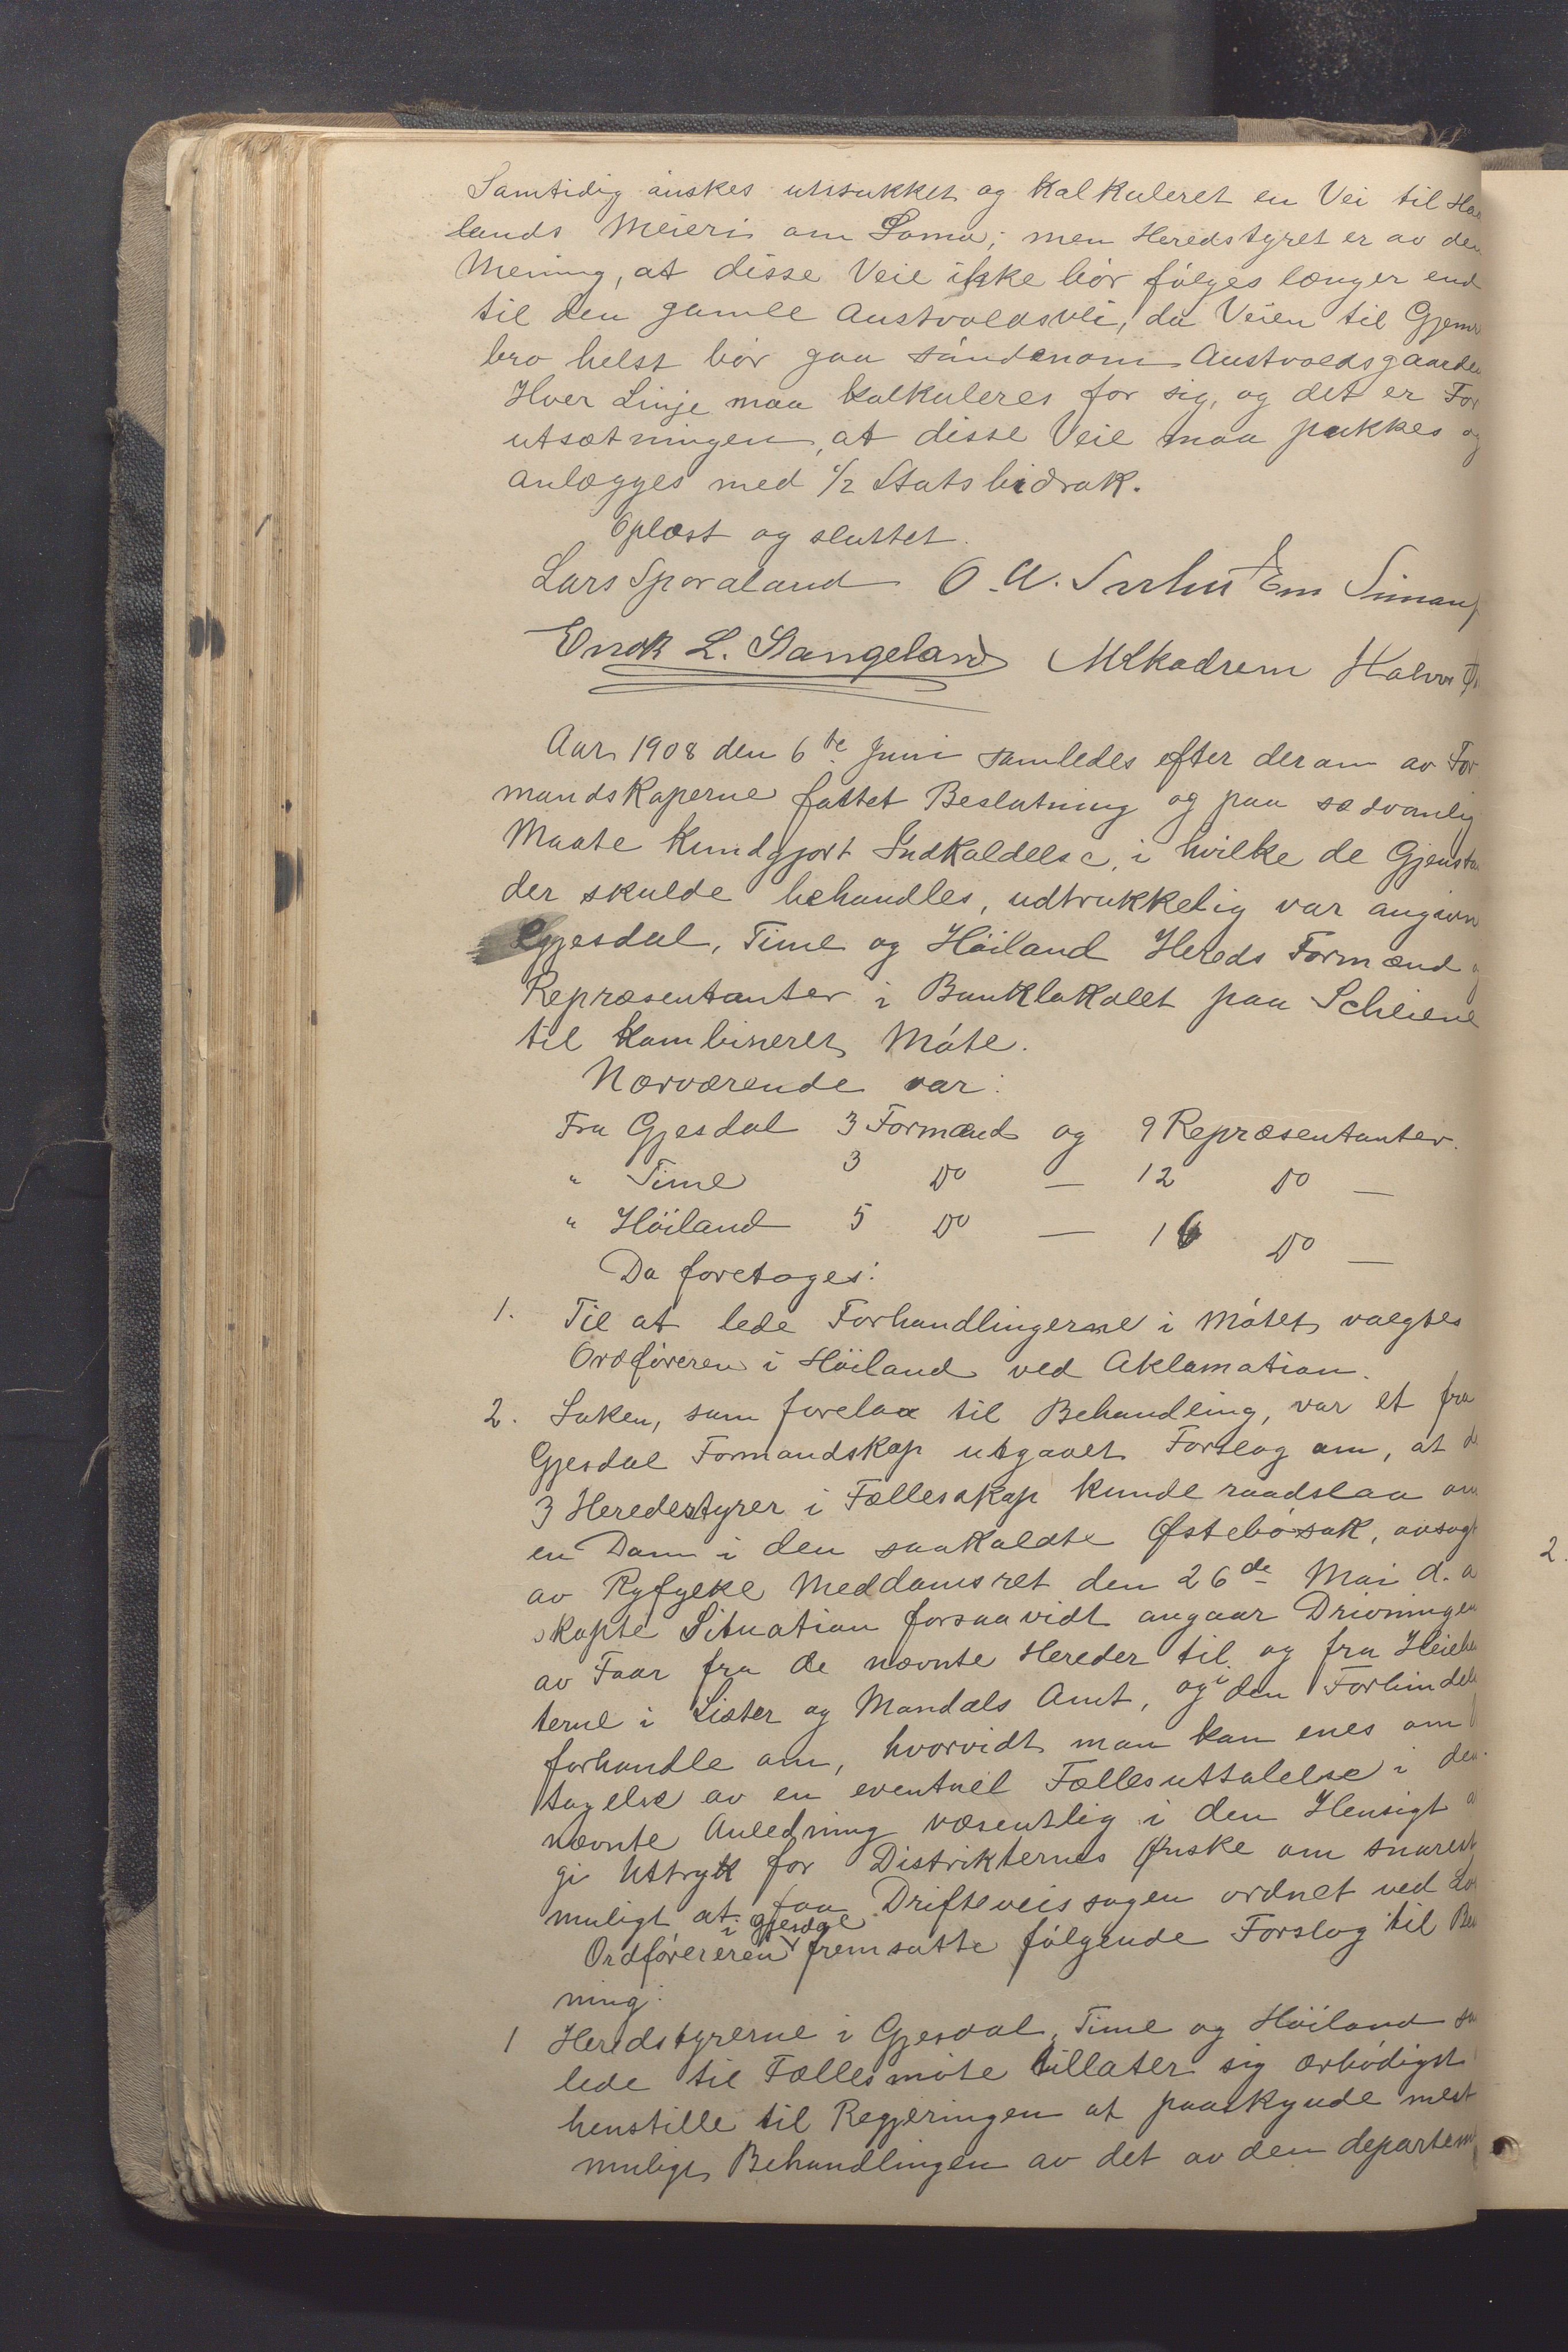 Samtidig önskes utstukket og kalkuleret en Vei til
lands Meieri om Soma; men Heredstyret er av den
Mening, at disse Veie ikke bör fölges længer end
til den gamle Austvoldsvei, da Veien til
bro helst bör gaa söndenom Austvoldsgaarden
Hver Linje maa kalkuleres for sig, og det er For
utsætningen, at disse Veie maa pukkes og
anlægges med 1/2 Statsbidrak.
Oplæst og sluttet.
Lars Sporaland O. A. Em
Enok L. Stangeland Halvor
Aar 1908 den 6te Juni samledes efter derom av For
mandskaperne fattet Beslutning og paa sædvanlig
Maate kundgjort Indkaldelse, i hvilke de Gjensta
der skulde behandles, udtrukkelig var angivn
Gjesdal, Time og Höiland Hereds Formænd
Repræsentanter i Banklokalet paa Scheiene
til kombineret Möte.
Nærværende var:
Fra Gjesdal 3 Formænd og 9 Repræsentanter.
" Time 3 Do — 12 Do —
" Höiland 5 Do — 16 Do —
Da foretoges:
1. Til at lede Forhandlingerne i Mötet valgtes
Ordföreren i Höiland ved Aklamation.
2. Saken, som forelaa til Behandling, var et fra
Gjesdal Formandskap utgaaet Forslag om, at de
3 Heredestyrer i Fællesskap kunde raadslaa om
en Dom i den saakaldte Östebösak, avsagt
av Ryfylke Meddomsret den 26de Mai d. a
skapte Situation forsaavidt angaar Drivningen
av Faar fra de nævnte Hereder til og fra Heiehe
terne i Lister og Mandals Amt, og i den Forbindel
forhandle om, hvorvidt man kan enes om
tagelse av en eventuel Fællesuttalelse i den
nævnte Anledning væsentlig i den Hensigt a
gi Uttryk for Distrikternes Ønske om snarest
muligt at faa Drifteveissagen ordnet ved Lo
Ordförereren i Gjesdal fremsatte fölgende Forslag til Be
ning:
1 Heredstyrerne i Gjesdal, Time og Höiland
lede til Fællesmöte tillater sig ærbödigst
henstille til Regjeringen at paaskynde mest
muligt Behandlingen av det av den departem
2.